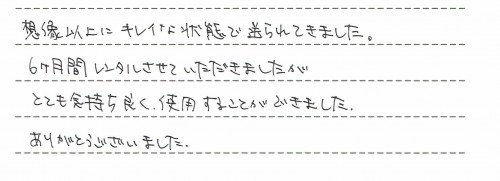 想像以上にキレイな状態で送られてきました。
6ヶ月間レンタルさせていただきましたが
とても気持ち良く、使用することができました.
ありがとうございました.